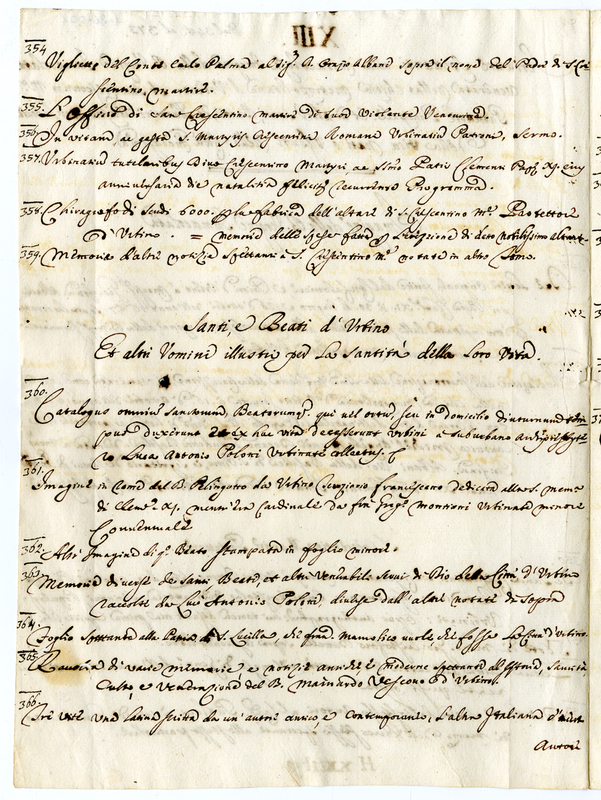 XIII
354. Viglietto del Conte Carlo Palma al Sig. A. Orazio Albani sopra il nome del Padre di S. Cre
scentino Martire.
355. L'Officio di San Crescentino martire di Suor Violante Veterana.
356. In vitam ac gesta S. Martyris Crescentini Romani Urbinatium Patroni, sermo.
357. Urbinatium tutelaribus Divo Crescentino Martyri ac Smo Patri Clementi Papae XI. eius
anniversaria die natalitia feliciter recurrente Programma.
358. Chirografo di scudi 6000 per la fabrica dell'altare di S. Crescentino Mre Protettore
d'Urbino. = memorie delle spese fatte per l'erezione di detto nobilissimo altare.
359. Memorie d'altre notizie spettanti a S. Crescentino Mre notate in altro
Santi, e Beati d'Urbino
Et altri Uomini illustri per la Santità della loro Vita.
360. Catalogus omnium Sanctorum, Beatorumq. qui vel ortum, seu in domicilio diuturnum tem
pus duxerunt ex hac vita decesserunt Urbini a suburbano
Luca Antonio Poloni Urbinate collectus.
361. Imagine in del B. Pelingotto da Urbino Terziario franciscano dedicata alla S. mem.
di Clem. XI. mentr'era Cardinale da fra Montioni Urbinate minore
Conventuale
362. Altra Imagine di qo Beato stampata in foglio minore.
363. Memorie diverse de Santi Beati, et altri Venerabili Servi di Dio della Città d'Urbino
raccolte da Luc'Antonio Poloni, diverse dall'altre notate di sopra
364. Foglio spettante alla Patria di S. Lucilla, che Maurolico vuole, che fosse la Città d'Urbino.
365. Raccolta di varie memorie e notizie antiche e moderne spettanti all'Istoria, Santità,
Culto, e Venerazione del B. Mainardo Vescovo d'Urbino.
366. Tre vite una latina scritta da un'autore antico, e contemporaneo, l'altra Italiana d'incerto
Autore